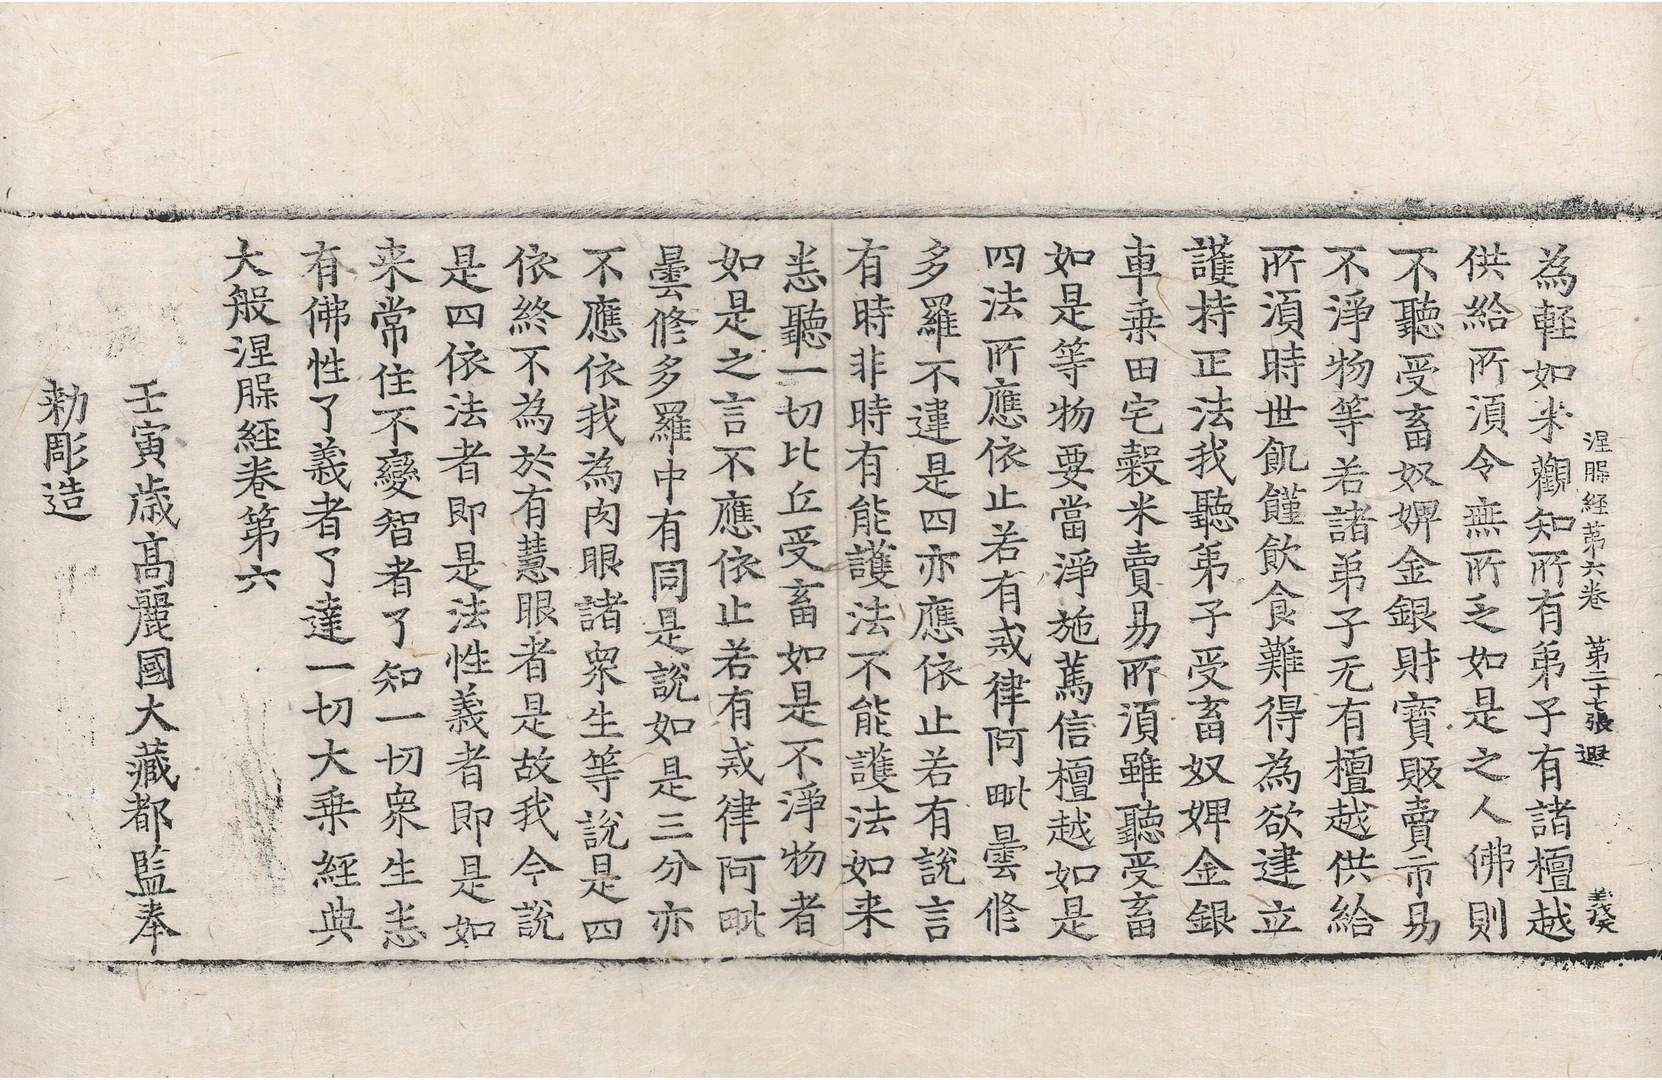 涅槃經苐六卷 第二十七張 遐
義癸
為輕如米觀知所有弟子有諸檀越
供給所湏令無所乏如是之人佛則
不聽受畜奴婢金銀財寶販賣市易
不淨物等若諸弟子无有檀越供給
所湏時世飢饉飲食難得為欲建立
護持正法我聽弟子受畜奴婢金銀
車乗田宅糓米賣易所湏雖聽受畜
如是等物要當淨施萬信檀越如是
四法所應依止若有戒律阿毗曇修
多羅不違是四亦應依止若有說言
有時非時有能護法不能護法如来
悉聽一切比丘受畜如是不淨物者
如是之言不應依止若有戒律阿毗
曇修多羅中有同是說如是三分亦
不應依我為肉眼諸衆生等說是四
依終不為於有慧眼者是故我今說
是四依法者即是法性義者即是如
来常住不變智者了知一切衆生悉
有佛性了義者了達一切大乗經典
大般涅槃經卷第六
壬寅歲髙麗國大藏都監奉
勑彫造